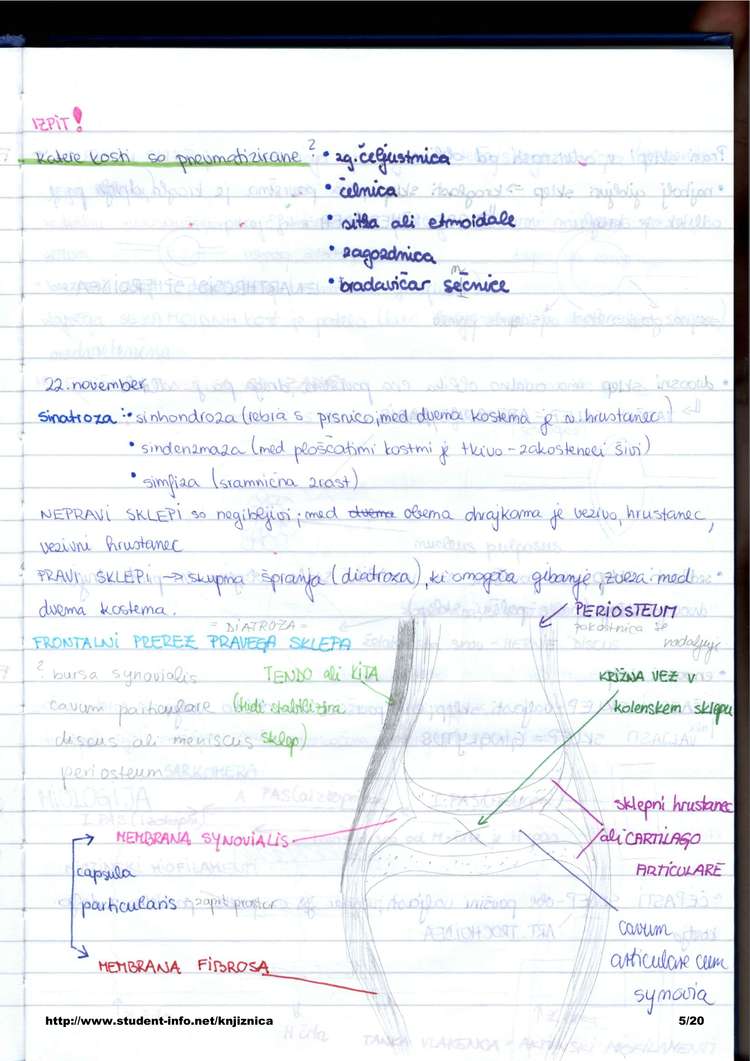 IZPIT!
Katere kosti so pneumatizirane? • zg. čeljustnica
• čelnica
• sitka ali etmoidale
• zagozdnica
• bradavičar sečnice
22. november
Sinatroza: • sinhondroza (rebra s prsnico, med dvema kostema je v. hrustanec)
• sindenzmaza (med ploščatimi kostmi je tkivo - zakosteneli šivi)
• simfiza (sramnična zrast)
NEPRAVI SKLEPI so negibljivi; med dvema obema okrajkoma je vezivo, hrustanec,
vezivni hrustanec
PRAVI SKLEPI → skupna špranja (diatroza), ki omogoča gibanje, zveza med
dvema kostema.
= DIATROZA =
FRONTALNI PREREZ PRAVEGA SKLEPA
PERIOSTEUM
pokostnica se
nadaljuje
? bursa synovialis
cavum particulare
discus ali meniscus
periosteum
TENDO ali KITA
(tudi stabilizira
sklep)
KRIŽNA VEZ V
kolenskem sklepu
sklepni hrustanec
ali CARTILAGO
ARTICULARE
MEMBRANA SYNOVIALIS
capsula
particularis zaprt prostor
MEMBRANA FIBROSA
cavum
articulare cum
synovia
http://www.student-info.net/knjiznica
5/20